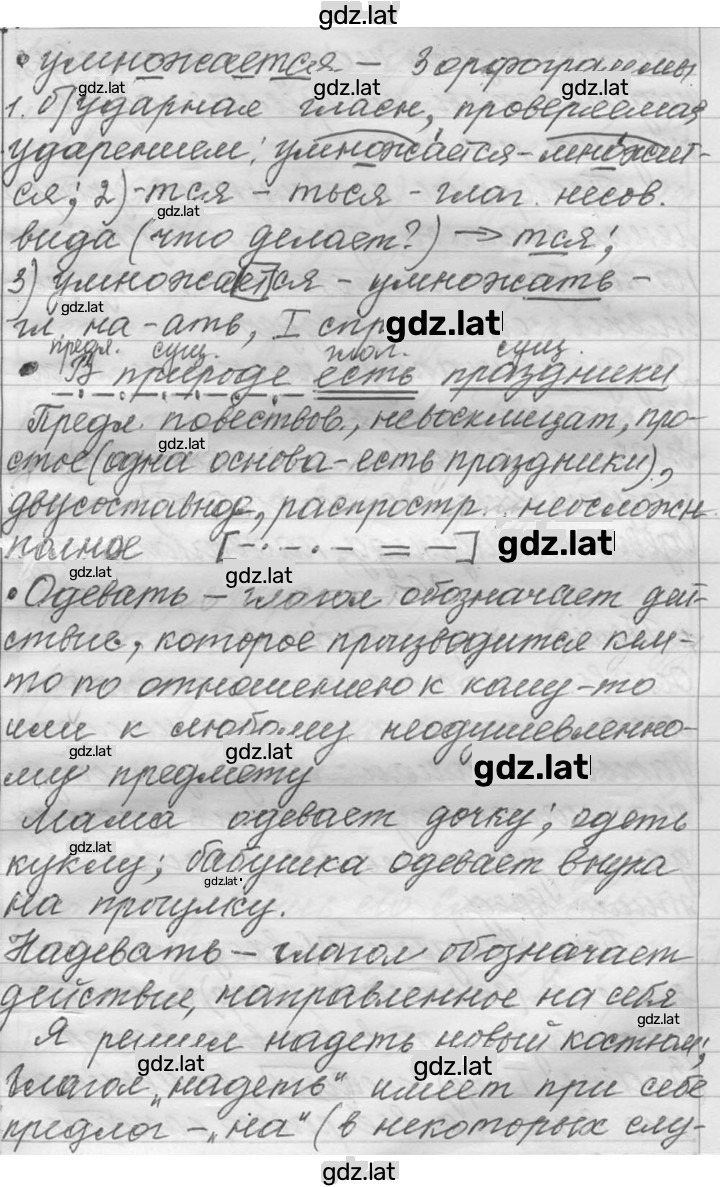 gdz.lat
• умножается – 3 орфограммы
1. б/ударная гласн., проверяемая
ударением: умножается – множит-
ся; 2) -тся – ться – глаг. несов.
вида (что делает?) → тся;
3) умножается – умножать –
гл. на -ать, I спр
предл. сущ. глаг. сущ.
• В природе есть праздники
Предл. повествов., невосклицат., про-
стое (одна основа – есть праздники),
двусоставное, распростр. неосложн.
полное [–·–·– = –]
• Одевать – глагол обозначает дей-
ствие, которое производится кем-
то по отношению к кому-то
или к любому неодушевленно-
му предмету
Мама одевает дочку; одеть
куклу; бабушка одевает внука
на прогулку.
Надевать – глагол обозначает
действие, направленное на себя
Я решил надеть новый костюм;
Глагол „надеть“ имеет при себе
предлог – „на“ (в некоторых слу-
gdz.lat